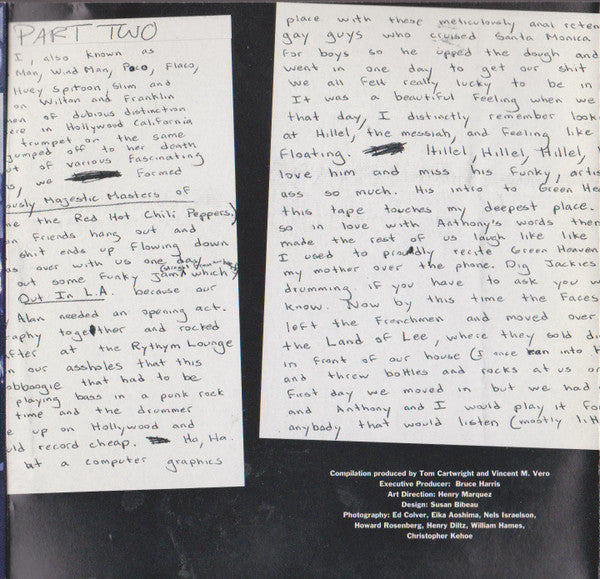 PART TWO
I, also known as
Man, Wind Man, Poco, Flaco,
Huey Spitoon, Slim and
on Wilton and Franklin
men of dubious distinction
ere in Hollywood California
trumpet on the same
jumped off to her death
t of various fascinating
we formed
ously Majestic Masters of
the Red Hot Chili Peppers.)
n Friends hang out and
shit ends up flowing down
as over with us one day
out some funky jams which
Out In L.A. because our
Alan needed an opening act.
raphy together and rocked
after at the Rythym Lounge
our assholes that this
obboogie that had to be
playing bass in a punk rock
time and the drummer
e up on Hollywood and
uld record cheap. Ha, Ha.
at a computer graphics
place with these meticulously anal reten
gay guys who cruised Santa Monica
for boys so he upped the dough and
went in one day to get our shit
We all felt really lucky to be in
It was a beautiful feeling when we
that day, I distinctly remember look
at Hillel, the messiah, and feeling like
Floating. Hillel, Hillel, Hillel,
love him and miss his funky, artis
ass so much. His intro to Green Hea
this tape touches my deepest place.
so in love with Anthony's words then
made the rest of us laugh like like
I used to proudly recite Green Heaven
my mother over the phone. Dig Jackies
drumming if you have to ask you w
know. Now by this time the Faces
left the Frenchmen and moved over
the Land of Lee, where they sold di
in front of our house (I once ran into t
and threw bottles and rocks at us or
first day we moved in but we had
and Anthony and I would play it for
anybody that would listen (mostly litt
Compilation produced by Tom Cartwright and Vincent M. Vero
Executive Producer: Bruce Harris
Art Direction: Henry Marquez
Design: Susan Bibeau
Photography: Ed Colver, Eika Aoshima, Nels Israelson,
Howard Rosenberg, Henry Diltz, William Hames,
Christopher Kehoe